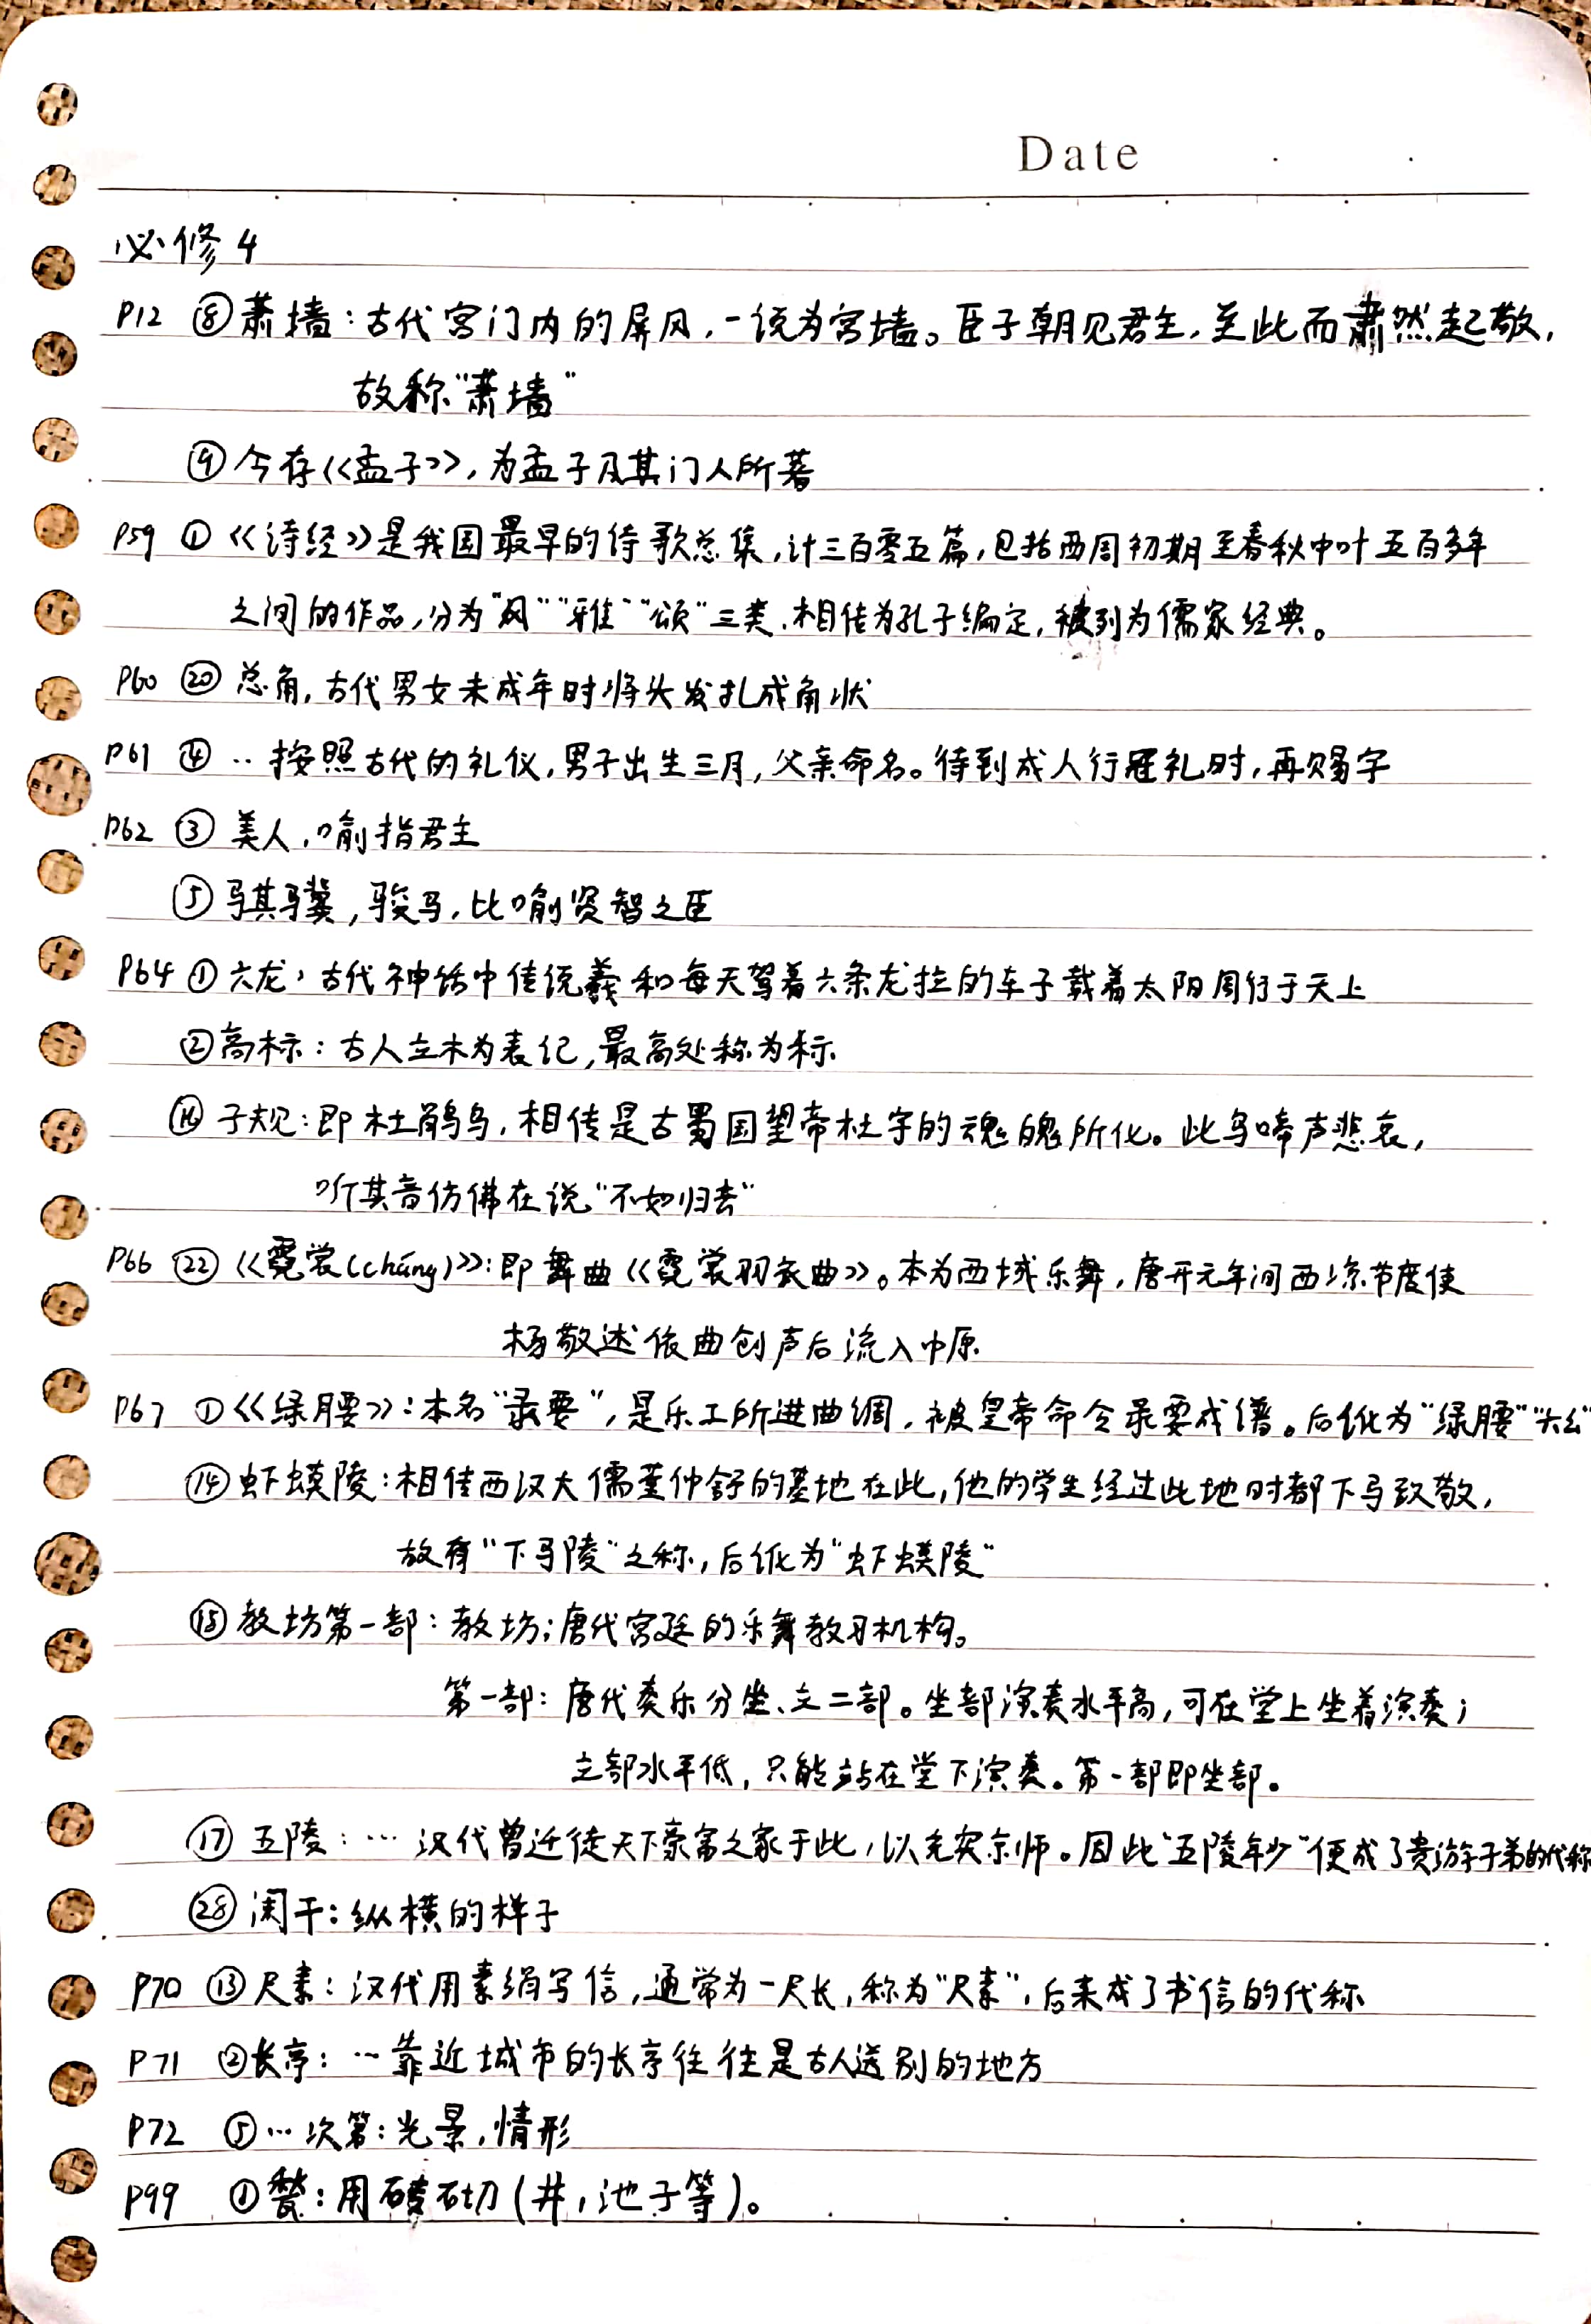 Date
必修4
P12 ⑧萧墙:古代宫门内的屏风,一说为宫墙。臣子朝见君主,至此而肃然起敬,
故称“萧墙”
⑨今存《孟子》,为孟子及其门人所著
P59 ①《诗经》是我国最早的诗歌总集,计三百零五篇,包括西周初期至春秋中叶五百多年
之间的作品,分为“风”“雅”“颂”三类,相传为孔子编定,被列为儒家经典。
P60 ⑳ 总角,古代男女未成年时将头发扎成角状
P61 ④ ..按照古代的礼仪,男子出生三月,父亲命名。待到成人行冠礼时,再赐字
P62 ③ 美人,喻指君主
⑤ 骐骥,骏马,比喻贤智之臣
P64 ①六龙,古代神话中传说羲和每天驾着六条龙拉的车子载着太阳周行于天上
②高标:古人立木为表记,最高处称为标
⑯ 子规:即杜鹃鸟,相传是古蜀国望帝杜宇的魂魄所化。此鸟啼声悲哀,
听其音仿佛在说“不如归去”
P66 ㉒《霓裳(cháng)》:即舞曲《霓裳羽衣曲》。本为西域乐舞,唐开元年间西凉节度使
杨敬述依曲创声后流入中原
P67 ①《绿腰》:本名“录要”,是乐工所进曲调,被皇帝命令录要成谱。后讹为“绿腰”“六幺”
⑭虾蟆陵:相传西汉大儒董仲舒的墓地在此,他的学生经过此地时都下马致敬,
故有“下马陵”之称,后讹为“虾蟆陵”
⑮教坊第一部:教坊;唐代宫廷的乐舞教习机构。
第一部:唐代奏乐分坐、立二部。坐部演奏水平高,可在堂上坐着演奏;
立部水平低,只能站在堂下演奏。第一部即坐部。
⑰ 五陵:… 汉代曾迁徙天下豪富之家于此,以充实京师。因此“五陵年少”便成了贵游子弟的代称
㉘阑干:纵横的样子
P70 ⑬尺素:汉代用素绢写信,通常为一尺长,称为“尺素”,后来成了书信的代称
P71 ②长亭:…靠近城市的长亭往往是古人送别的地方
P72 ⑤…次第:光景,情形
P99 ①甃:用砖砌(井,池子等)。